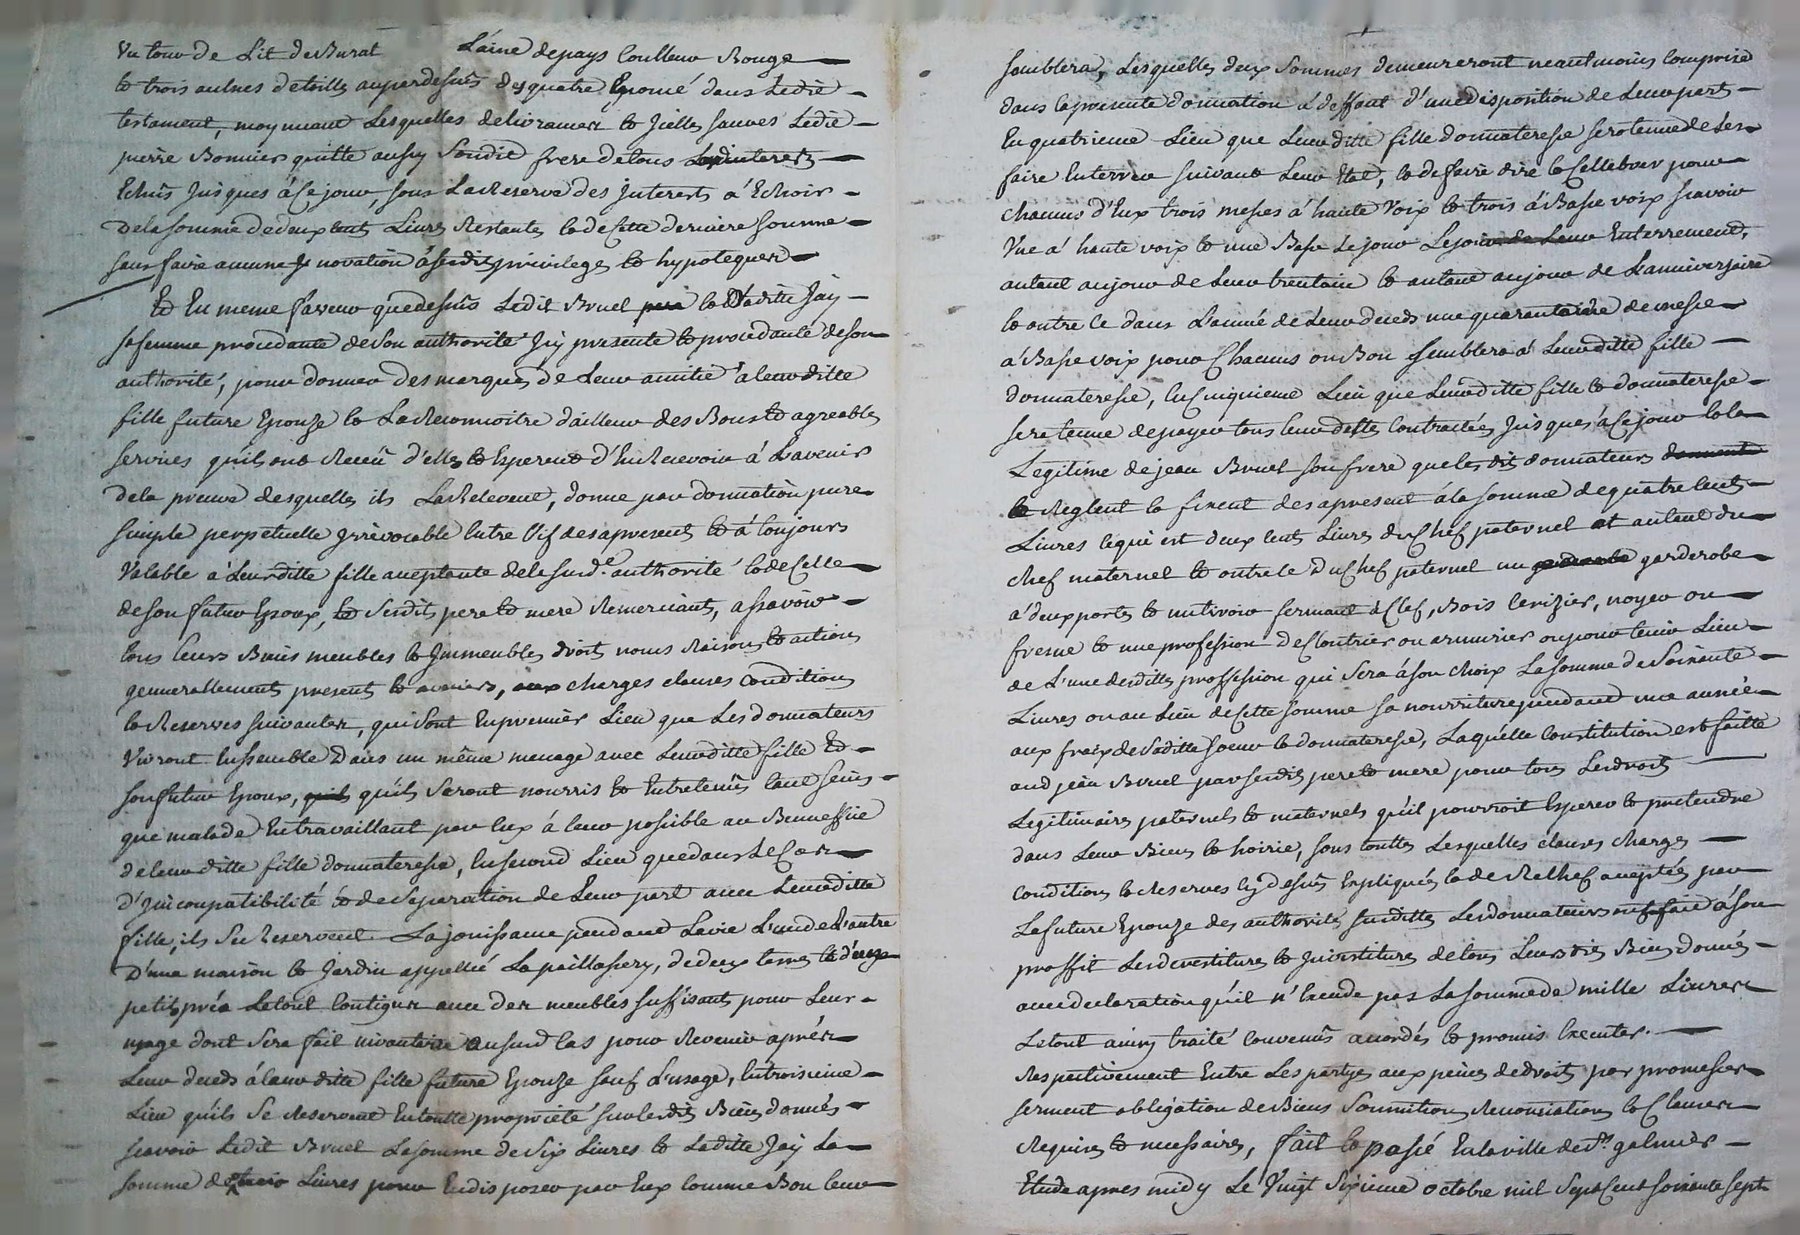 Un tour de Lit de Burat Laine de pays Coulleur Rouge
et trois aulnes d'etoille auperdessus des quatre Enoncé dans Ledit
testament, moyennant Lesquelles delivrances et Jcelles sauves Ledit
pierre Bonnier quitte aussy Sondit frere de tous Les interets
Echus Jusques à Ce jour, sous La Reserve des Jnterets a Echoir
De la somme de deux Cents Livres Restante, et de Cette derniere somme
sans faire aucune novation à ses dits privileges et hypoteques
Et En meme faveur que dessus Ledit Bruel et Laditte Jay
sa femme procedante de son authorité Jcy presente et procedante de son
authorité, pour donner des marques de Leur amitié à leur ditte
fille future Epouze et La Reconnoitre dailleur des Bons et agreables
services quils ont Receü d'elle et Esperent d'En Recevoir à L'avenir
de la preuve desquelles ils La Relevent, donne par donnation pure
simple perpetuelle Jrrevocable Entre Vif des apresent et à toujours
Valable à Leurditte fille aceptante de la susd.e authorité et de Celle
de son futur Epoux, et Sesdits pere et mere Remerciant, assavoir
tous leurs Biens meubles et Jmmeubles droits noms Raisons et actions
generallement present et avenirs, aux charges clauses conditions
et Reserves suivantes, qui Sont En premier Lieu que Les donnateurs
Vivront Ensemble Dans un même menage avec Leurditte fille Et
son futur Epoux, quils Seront nourris et Entretenus tant sains
que malade En travaillant par Eux à leur possible au Benneffice
de leur ditte fille donnateresse, En second Lieu que dans Le Cas
d'Jncompatibilité et de Separation de Leur part avec Leurditte
fille, ils Se Reservent La jouissance pendant La vie L'un de L'autre
D'une maison et Jardin appellée La paillassery, de deux terres et d'un
petit pré Le tout Contigux avec des meubles suffisants pour Leur
usage dont Sera fait inventaire au susd Cas pour Revenir aprés
Leur decds à leur ditte fille future Epouze sauf L'usage, En troisieme
Lieu quils Se Reservent En toutte proprieté sur lesdits Biens donnés
scavoir Ledit Bruel La somme de Six Livres et Laditte Jay La
somme de trois Livres pour En disposer par Eux Comme Bon leur
semblera, Lesquelles deux Sommes demeureront neantmoins Comprise
dans la presente donnation à deffaut d'une disposition de Leur part
En quatrieme Lieu que Leurditte fille donnateresse sera tenue de Les
faire Enterrer suivant Leur Etat, et de faire dire et Cellebrer pour
chacuns d'Eux trois messes à haute Voix et trois à Basse voix scavoir
Une à haute voix et une Basse Le jour de Leur Enterrement,
autant au jour de Leur trentaine et autant au jour de L'anniversaire
et outre Ce dans L'année de Leur decds une quarantaine de messe
à Basse voix pour Chacuns ou Bon semblera à Leurditte fille
donnateresse, En Cinquieme Lieu que Leurditte fille et donnateresse
sera tenue de payer tous leur dettes Contractées Jusques à Ce jour et la
Legitime de jean Bruel son frere que lesdits donnateurs
Reglent et fixent des apresent à la somme de quatre Cents
Livres ce qui est deux Cents Livres du Chef paternel et autant du
chef maternel et outre Ce Du Chef paternel un garderobe
à deux portes et un tiroir fermant à Clef, Bois Cerizier, noyer ou
fresne et une profession de Cloutrier ou armurier ou pour tenir Lieu
de L'une desdittes proffession qui Sera à son choix La somme de Soixante
Livres ou au Lieu de Cette somme sa nourriture pendant une année
aux fraix de Saditte soeur et donnateresse, Laquelle Constitution est faitte
aud jean Bruel par sesdits pere et mere pour tous Lesdroits
Legitimaires paternels et maternels qu'il pourroit Esperer et pretendre
dans Leur Biens et hoirie, sous touttes Lesquelles clauses charges
conditions et Reserves Cy dessus Expliquées et de Relief aceptées par
La future Epouze des authorités susdittes Lesdonnateurs ont fait à son
proffit Lesdevestitures et Jnvestitures de tous Leursdits Biens donnés
avec declaration qu'il n'Excede pas La somme de mille Livres
Le tout ainsy traité convenus accordés et promis Executer.
Respectivement Entre Les partyes aux peines de droits par promesses
serment obligation de Biens Soumitions Renonciations et Clauses
Requises et necessaires, fait et passé En la ville de St galmier
Etude apres midy Le Vingt Sixieme octobre mil Sept Cent soixante sept